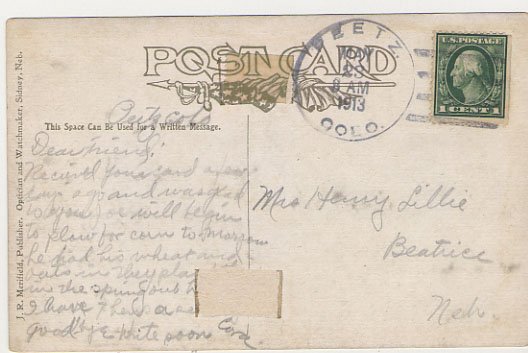 POST CARD
PEETZ
MAY
23
8 AM
1913
COLO.
U.S. POSTAGE
1 CENT 1
J. R. Merifield, Publisher. Optician and Watchmaker, Sidney, Neb.
Peetz Colo
This Space Can Be Used for a Written Message.
Dear friend;
Recievd your card a few
days ago and was glad
to you Joe will begin
to plow for corn to Morrow
he had his wheat and
oats in they
in the spring but
I have
good bye write soon Cora
Mrs Henry Lillie
Beatrice
Neb.